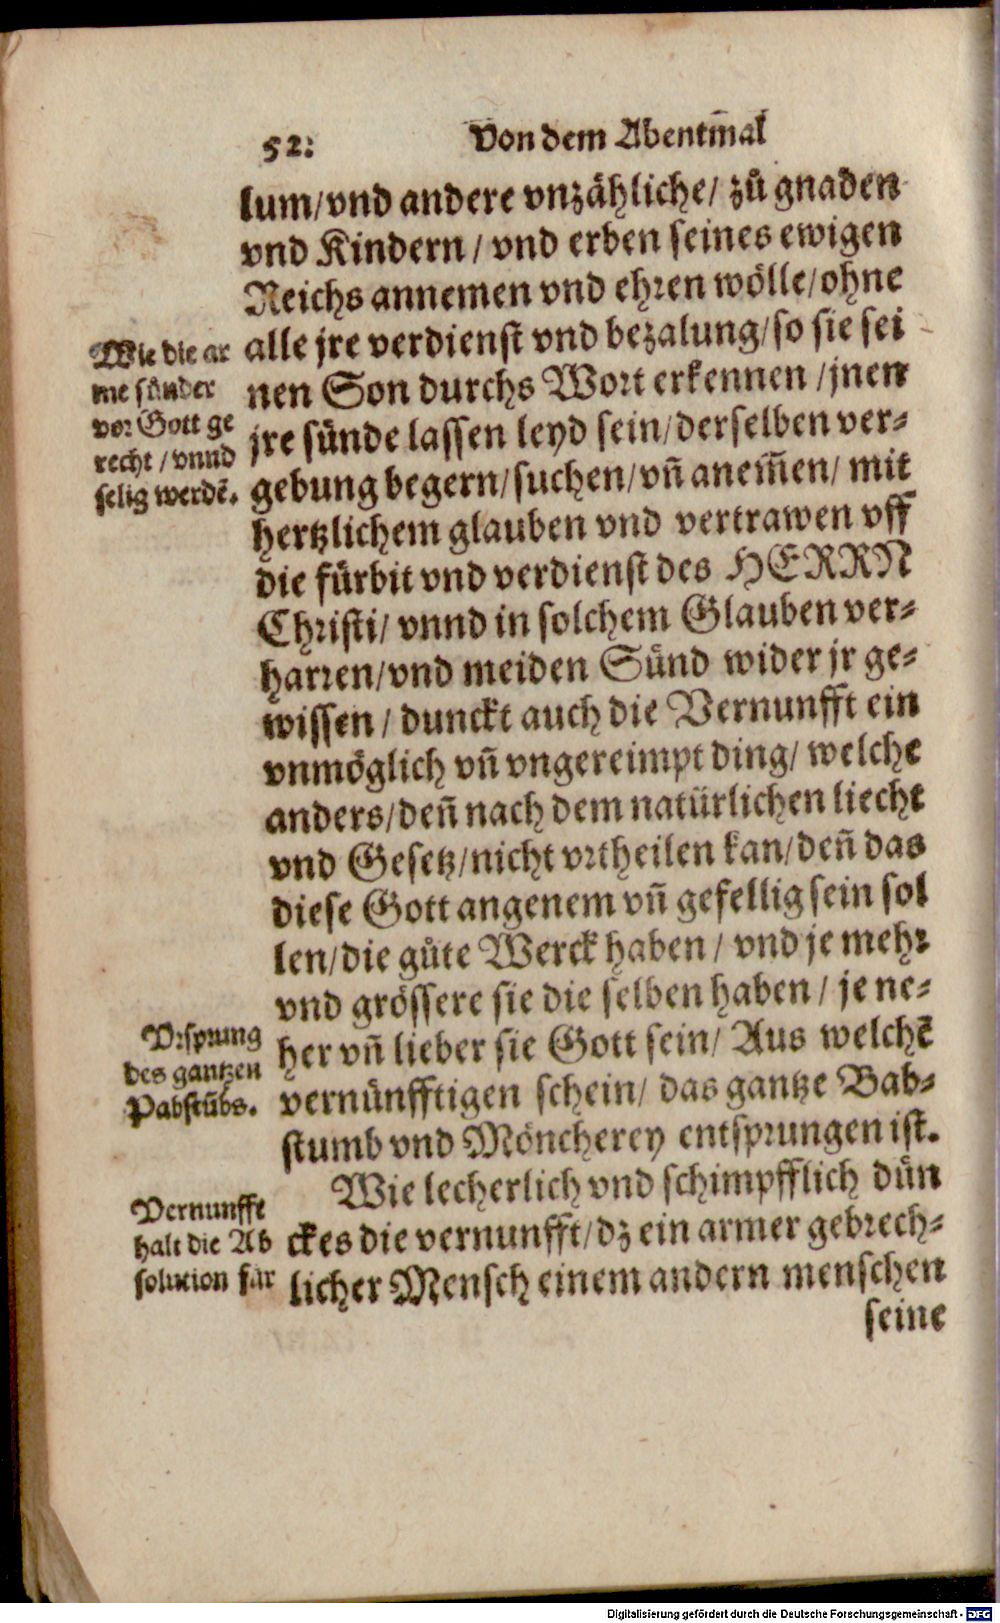 52:
Von dem Abentm̃al
lum/vnd andere vnzähliche/ zů gnaden
vnd Kindern / vnd erben seines ewigen
Reichs annemen vnd ehren wölle/ohne
alle jre verdienst vnd bezalung/so sie sei
nen Son durchs Wort erkennen /jnen
jre sünde lassen leyd sein/derselben ver-
gebung begern/suchen/vñ anem̃en/ mit
hertzlichem glauben vnd vertrawen vff
die fürbit vnd verdienst des HERRN
Christi/ vnnd in solchem Glauben ver-
harren/vnd meiden Sünd wider jr ge-
wissen / dunckt auch die Vernunfft ein
vnmöglich vñ vngereimpt ding/ welche
anders/deñ nach dem natürlichen liecht
vnd Gesetz/nicht vrtheilen kan/deñ das
diese Gott angenem vñ gefellig sein sol
len/die gůte Werck haben / vnd je mehr
vnd grössere sie die selben haben / je ne-
her vñ lieber sie Gott sein/ Aus welchẽ
vernünfftigen schein/ das gantze Bab-
stumb vnd Möncherey entsprungen ist.
Wie lecherlich vnd schimpfflich dün
ckes die vernunfft/dz ein armer gebrech-
licher Mensch einem andern menschen
seine
Wie die ar
me sünder
vor Gott ge
recht / vnnd
selig werdẽ.
Vrsprung
des gantzen
Pabstũbs.
Vernunfft
halt die Ab
solution für
Digitalisierung gefördert durch die Deutsche Forschungsgemeinschaft - DFG